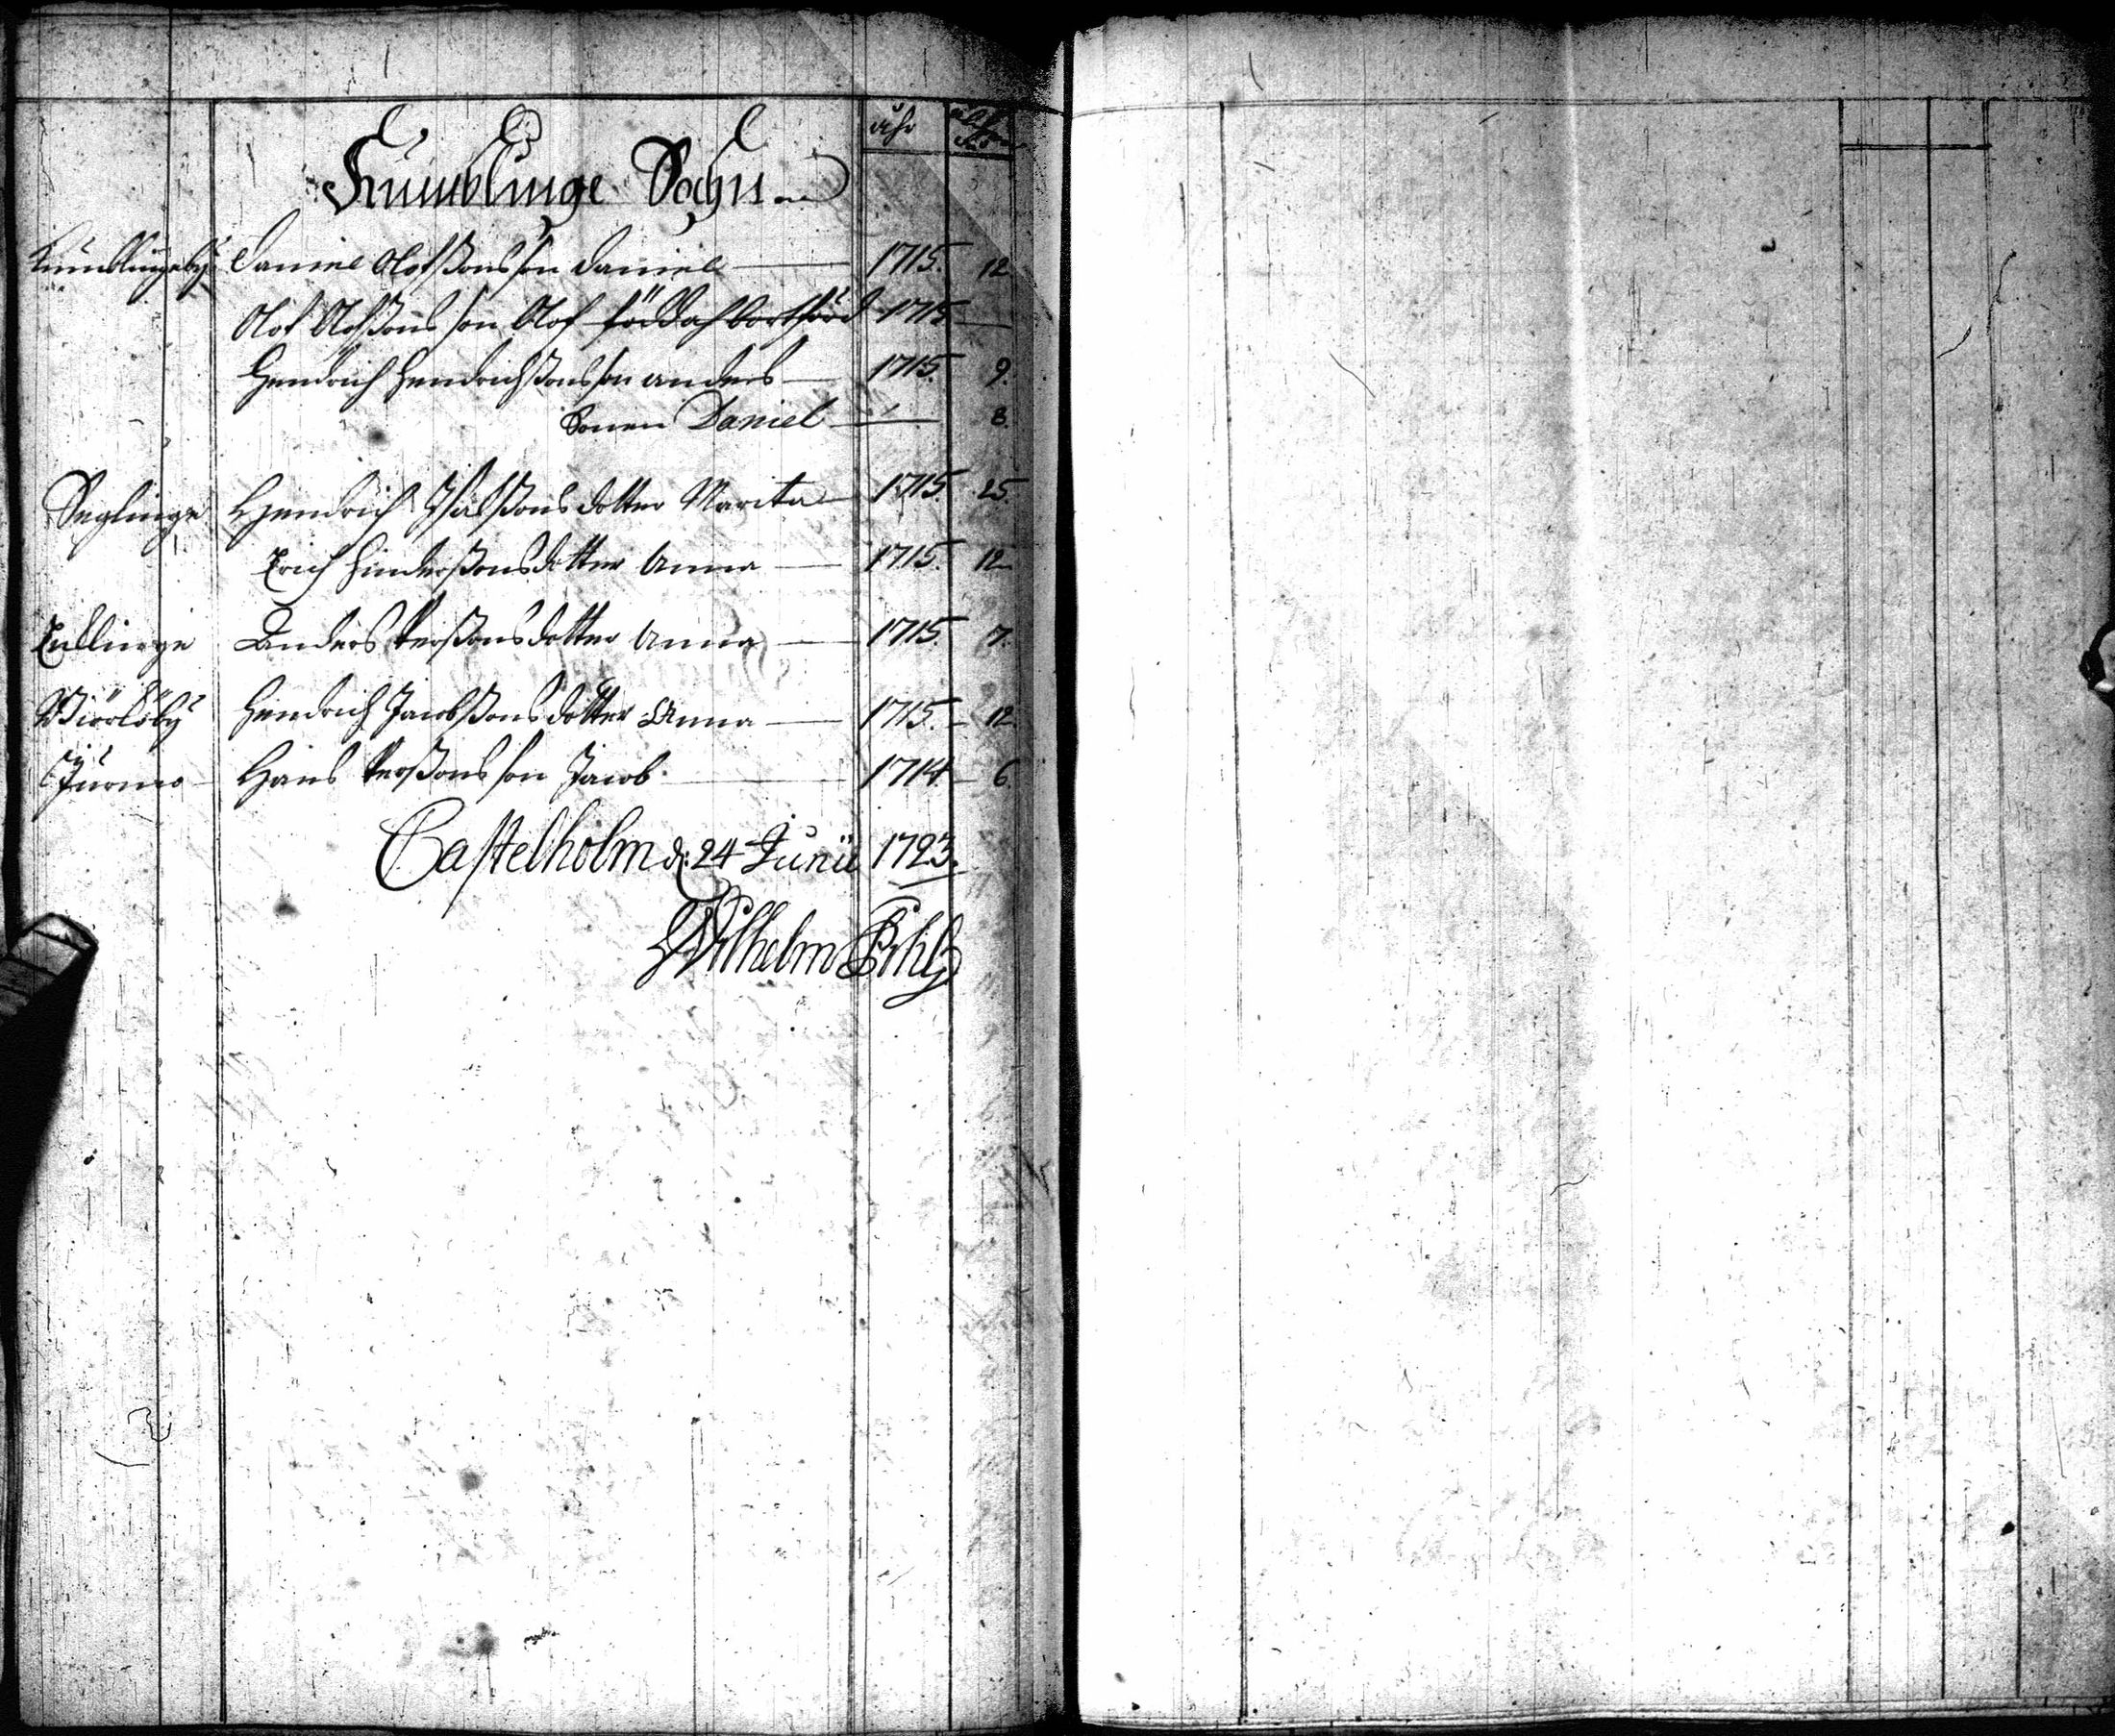 åhr ålder
Kumblinge Sochn
Kumblingeby Daniel Olofssons son Daniel 1715. 12
Olof Olofssons son Olof föddah bortförd 1715
Hendrich Hendrichssons son Anders 1715. 9.
Sonen Daniel 8.
Seglinge Hendrich Isacssons dotter Marita 1715. 25.
Erich Hinderssons dotter Anna 1715. 12
Enklinge Anders Perssons dotter Anna 1715. 7.
Biörköby Hendrich Jacobssons dotter Anna 1715. 12
Jurmo Hans Perssons son Jacob 1714 6.
Castelholm d: 24 Junii 1723.
Wilhelm